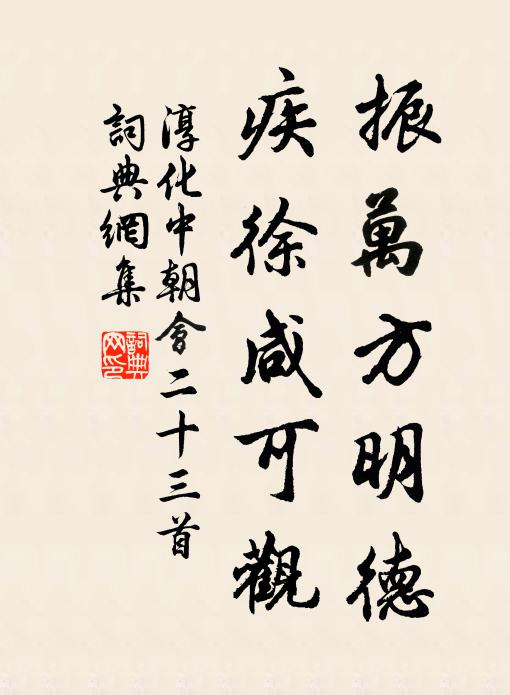 振萬方明德
疾徐咸可觀
淳化中朝會二十三首
詞典網集
詞典網印